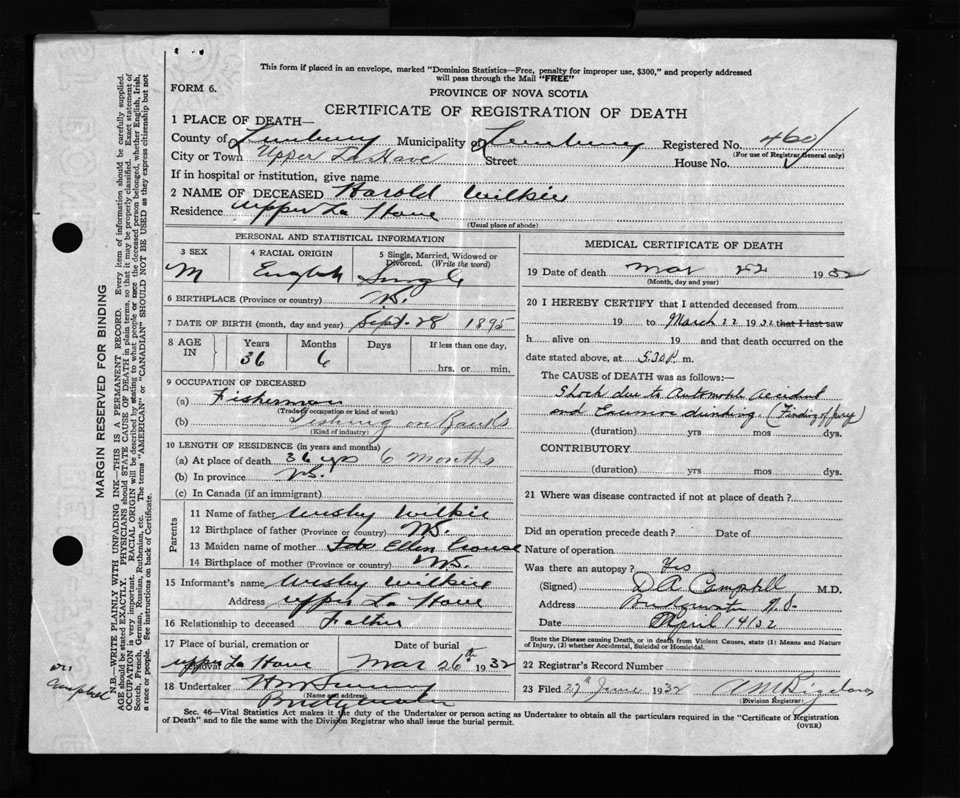 This form if placed in an envelope, marked "Dominion Statistics—Free, penalty for improper use, $300," and properly addressed
will pass through the Mail "FREE"
FORM 6.
PROVINCE OF NOVA SCOTIA
CERTIFICATE OF REGISTRATION OF DEATH
1 PLACE OF DEATH—
County of Lunenburg Municipality of Lunenburg Registered No. 460
(For use of Registrar General only)
City or Town Upper LaHave Street House No.
If in hospital or institution, give name
2 NAME OF DECEASED Harold Wilkie
Residence Upper La Have
(Usual place of abode)
PERSONAL AND STATISTICAL INFORMATION
3 SEX 4 RACIAL ORIGIN 5 Single, Married, Widowed or Divorced. (Write the word)
M English Single
6 BIRTHPLACE (Province or country) N.S.
7 DATE OF BIRTH (month, day and year) Sept. 28 1895
8 AGE IN Years Months Days If less than one day,
36 6 hrs. or min.
9 OCCUPATION OF DECEASED
(a) Fisherman
(Trade, occupation or kind of work)
(b) Fishing on Banks
(Kind of industry)
10 LENGTH OF RESIDENCE (in years and months)
(a) At place of death 36 yrs 6 months
(b) In province N.S.
(c) In Canada (if an immigrant)
Parents
11 Name of father Wesley Wilkie
12 Birthplace of father (Province or country) N.S.
13 Maiden name of mother Ida Ellen Crouse
14 Birthplace of mother (Province or country) N.S.
15 Informant's name Wesley Wilkie
Address Upper La Have
16 Relationship to deceased Father
17 Place of burial, cremation or Date of burial
Upper La Have Mar 26th 1932
18 Undertaker
(Name and address)
Bridgewater
MEDICAL CERTIFICATE OF DEATH
19 Date of death Mar 22 1932
(Month, day and year)
20 I HEREBY CERTIFY that I attended deceased from
19 to March 22 1932 that I last saw
h alive on 19 and that death occurred on the
date stated above, at 5.30 P. m.
The CAUSE OF DEATH was as follows:—
Shock due to Automobile Accident
and drinking (Finding of Jury)
(duration) yrs mos dys.
CONTRIBUTORY
(duration) yrs mos dys.
21 Where was disease contracted if not at place of death?
Did an operation precede death? Date of
Nature of operation
Was there an autopsy? Yes
(Signed) D A Campbell M.D.
Address Bridgewater N.S.
Date April 14/32
State the Disease causing Death, or in death from Violent Causes, state (1) Means and Nature
of Injury, (2) whether Accidental, Suicidal or Homicidal.
22 Registrar's Record Number
23 Filed 27th June 1932
(Division Registrar)
Sec. 46—Vital Statistics Act makes it the duty of the Undertaker or person acting as Undertaker to obtain all the particulars required in the "Certificate of Registration
of Death" and to file the same with the Division Registrar who shall issue the burial permit. (OVER)
MARGIN RESERVED FOR BINDING
N.B.—WRITE PLAINLY WITH UNFADING INK—THIS IS A PERMANENT RECORD. Every item of information should be carefully supplied.
AGE should be stated EXACTLY. PHYSICIANS should STATE CAUSE OF DEATH in plain terms, so that it may be properly classified. Exact statement of
OCCUPATION is very important. RACIAL ORIGIN will be described by stating to what people or race the deceased person belonged, whether English, Irish,
Scotch, French, German, Russian, Ruthenian, etc. The terms "AMERICAN" or "CANADIAN" SHOULD NOT BE USED as they express citizenship but not
a race or people. See instructions on back of Certificate.
Dr.
Campbell